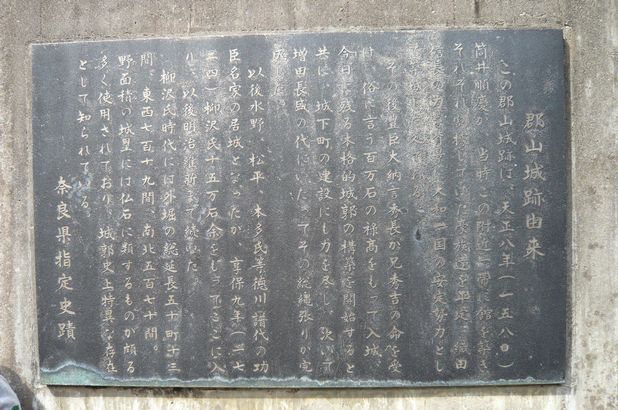 郡山城跡由来
この郡山城跡は、天正八年(一五八〇)
筒井順慶が、当時この附近一帯に館を築き
それぞれ割拠していた豪族達を平定、織田
の力を大和一国の安定勢力とし
その後豊臣大納言秀長が兄秀吉の命を受
け、俗に言う百万石の禄高をもって入城、
今日に残る本格的城郭の構築を開始すると
共に、城下町の建設にも力を尽し、次いで
増田長盛の代にいたってその総縄張りが完
成した。
以後水野、松平、本多氏等徳川譜代の功
臣名家の居城となったが、享保九年(一七
二四)柳沢氏十五万石余をもってここに入
り、以後明治維新まで続いた。
柳沢氏時代には外堀の総延長五十町十三
間、東西七百十九間、南北五百七十間。
野面積の城塁には仏石に類するものが頗る
多く使用されており、城郭史上特異な存在
として知られている。
奈良県指定史蹟